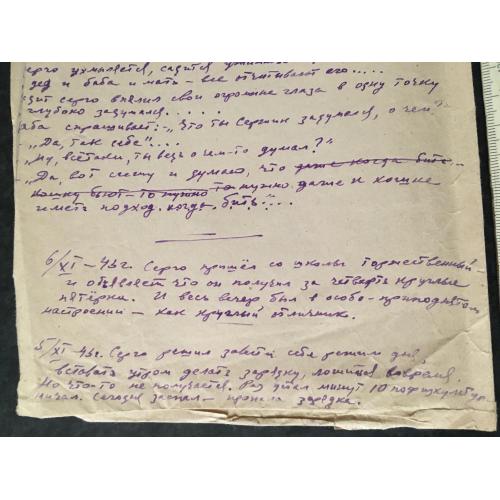 Серго ухмыляется, садится
дед и баба и мать – все отчитывают его.....
Серго впялил свои огромные глаза в одну точку
глубоко задумался.....
баба спрашивает: – „Что ты Сергик задумался, о чем"
„Да, так себе"....
„Ну, всётаки, ты ведь о чем-то думал?"
„Да, вот сижу и думаю, что уже когда бить
кошку бьют-то нужно то нужно даже к кошке
иметь подход. когда бить"...
6/XI – 46г. Серго пришёл со школы торжественный –
и объявляет что он получил за четверть круглые
пятёрки. И весь вечер был в особо-приподнятом
настроении – как круглый отличник.
5/XI – 46г. Серго решил завести себе режим дня,
вставать утром делать зарядку, ложиться вовремя,
Но что-то не получается. Раз делал минут 10 пофизкультур
ничал. Сегодня заспал – пропала зарядка.